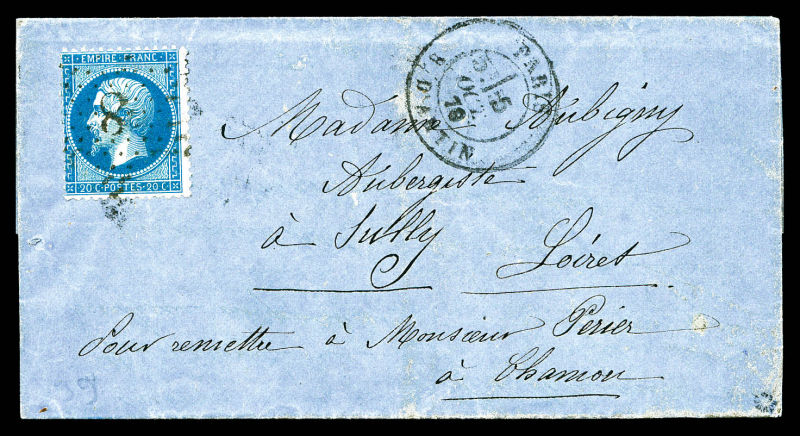 EMPIRE FRANC
20 C - POSTES - 20 C
38
PARIS
Madame Aubigny
Aubergiste
à Sully
Loiret
Pour remettre à Monsieur Périer
à Chamon
39